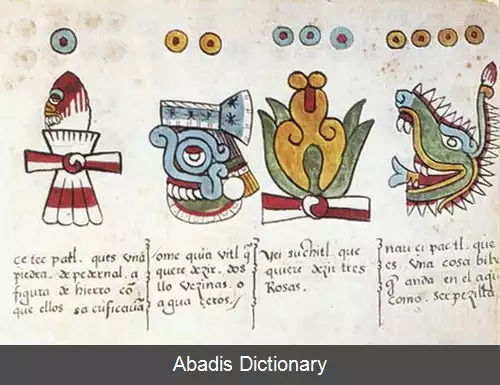 ce tec patl. ques vna
piedra. de pedernal. a
figura de hierro cõ
que ellos sacrificauã
ome quia vitl q̃
quere dezir. dos
llo vezinas. o
agua ceros.
yei suchitl. que
quiere dezir tres
Rosas.
naui cipactl. que
es vna cosa biba
q̃ anda en el agua
como. serpezilla
Abadis Dictionary